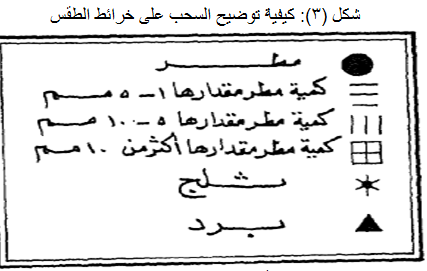 شكل (٣): كيفية توضيح السحب على خرائط الطقس
مطر
كمية مطر مقدارها ١ – ٥ مم
كمية مطر مقدارها ٥ – ١٠ مم
كمية مطر مقدارها أكثر من ١٠ مم
ثلج
برد